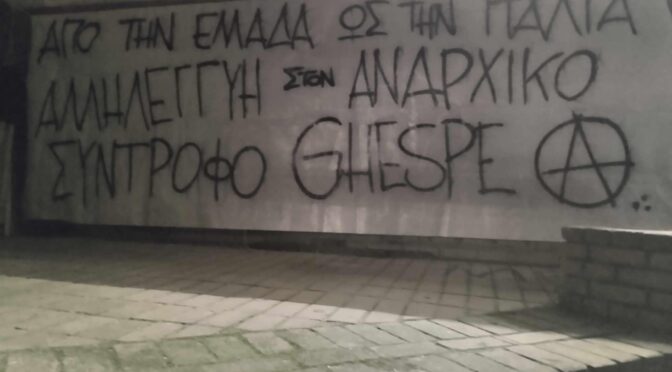 ΑΠΟ ΤΗΝ ΕΛΛΑΔΑ ΩΣ ΤΗΝ ΙΤΑΛΙΑ
ΑΛΛΗΛΕΓΓΥΗ ΣΤΟΝ ΑΝΑΡΧΙΚΟ
ΣΥΝΤΡΟΦΟ GHESPE Ⓐ